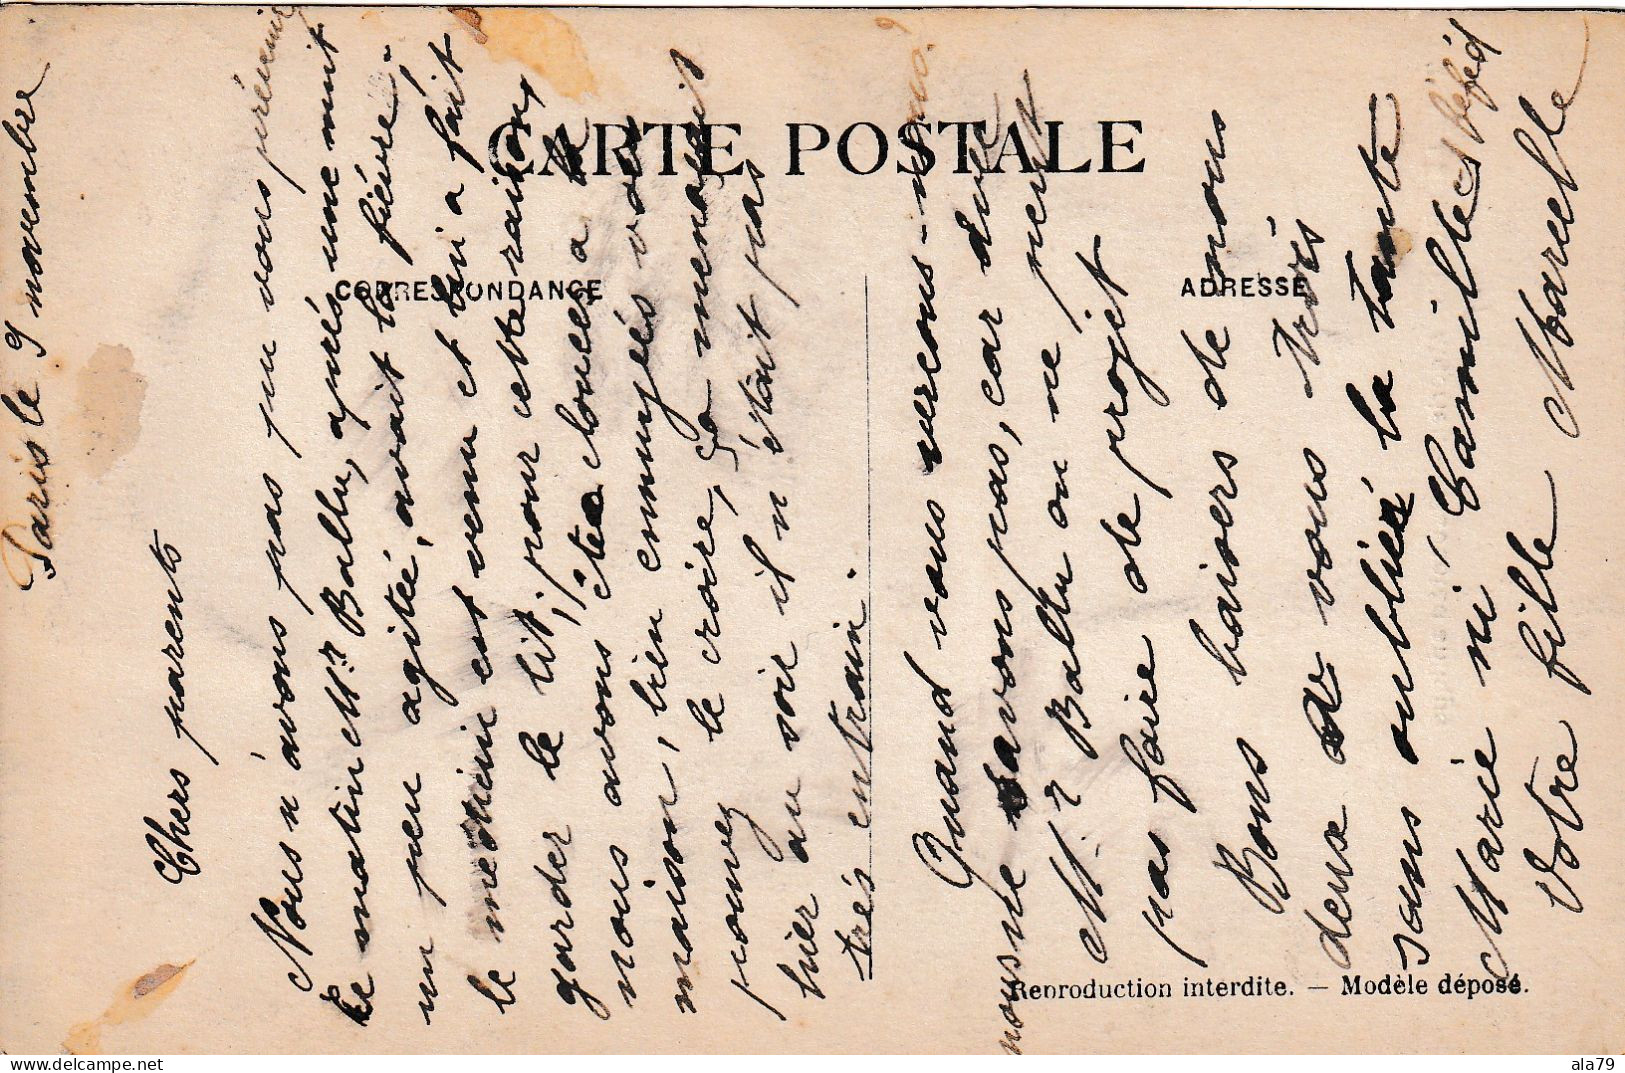 CARTE POSTALE
CORRESPONDANCE
ADRESSE
Paris le 9 novembre
Chers parents
Nous n'avons pas pu vous prévenir
le matin Mr Ballu, après une nuit
un peu agitée, avait la fièvre.
le médecin est venu et lui a fait
garder le lit; pour cette raison,
nous avons été clouées à la
maison, bien ennuyées vous
pouvez le croire, ça menaçait
hier au soir il n'était pas
très entrain.
Quand vous verrons-nous?
nous ne savons pas, car avec
Mr Ballu on ne peut
pas faire de projet
Bons baisers de nous
deux à vous trois
sans oublier la tante
Marie ni Camille et bébé
Votre fille Marcelle
Reproduction interdite. — Modèle déposé.
delcampe.net
ala79